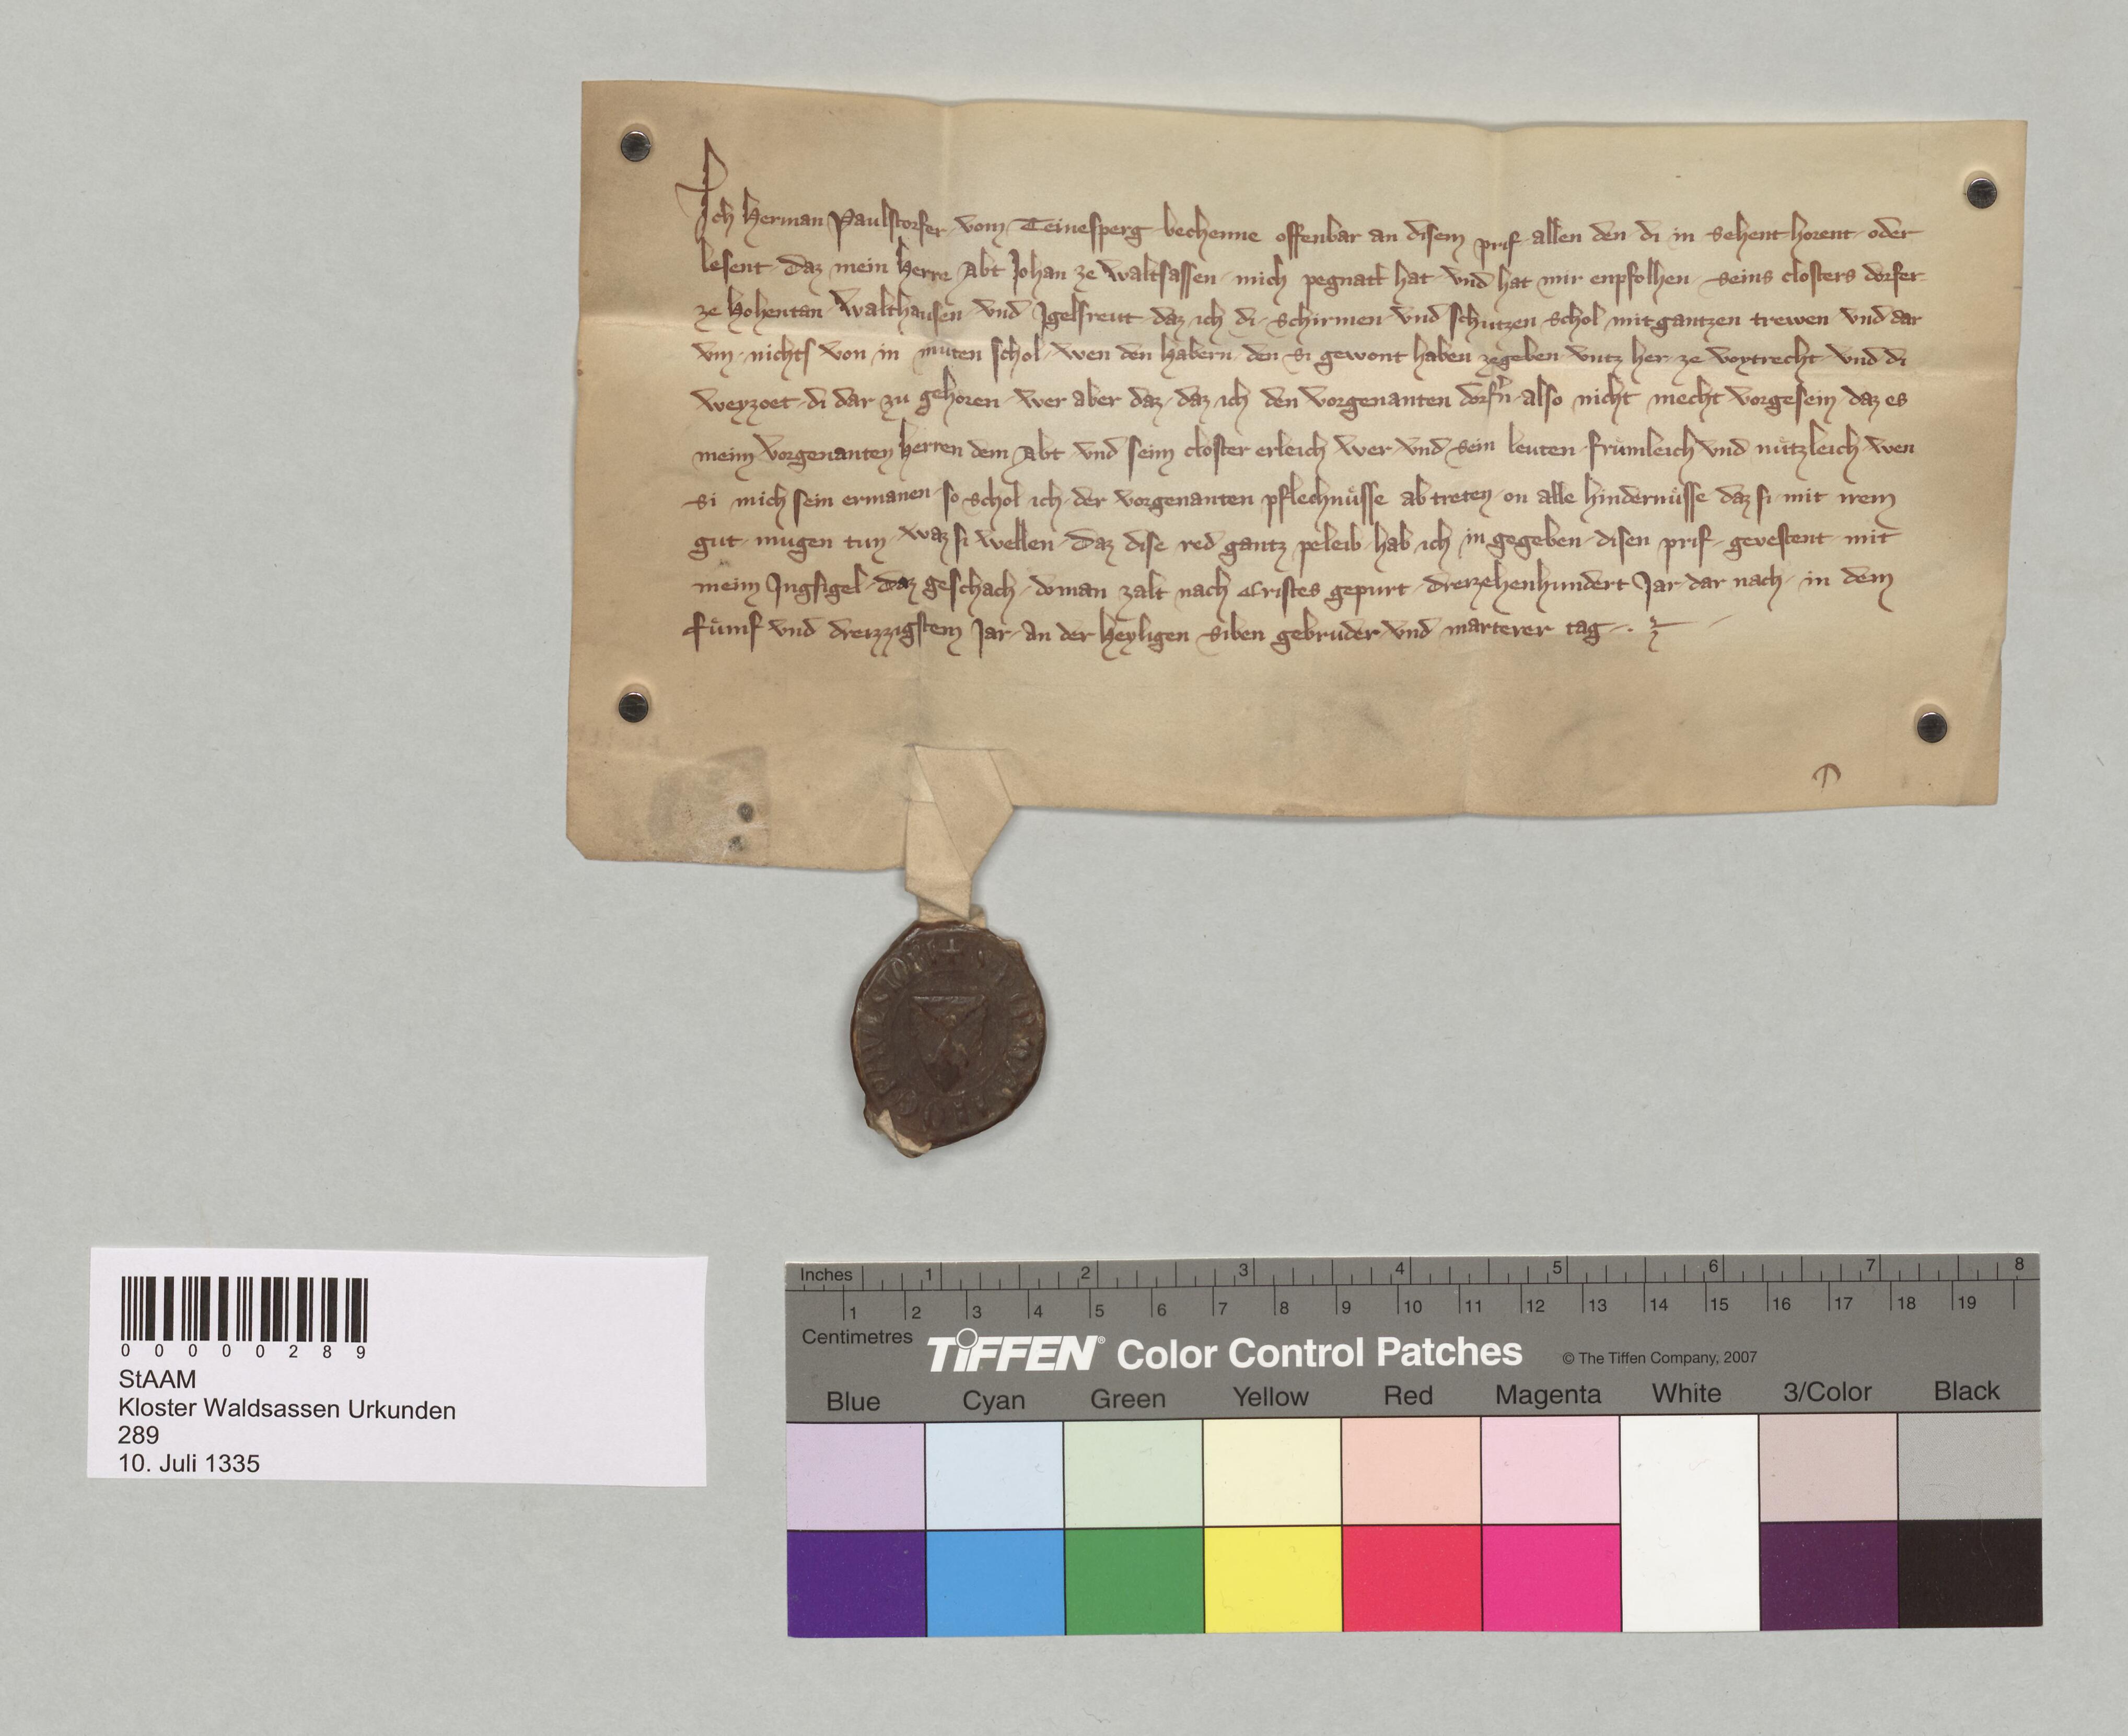 Ich Herman Paulstorfer vom Teinesperg bechenne offenbar an disem prif allen den di in sehent horent oder
lesent daz mein Herre Abt Johan ze Waltsassen mich pegnatt hat vnd hat mir enpfolhen seins closters dorfer
ze Hohentan Walthausen vnd Igelsreut daz ich di schirmen vnd schutzen schol mit gantzen trewen vnd dar
vm nichts von in muten schol wen den habern den si gewont haben ze geben vntz her ze voytrecht vnd di
weyzoet di dar zu gehoren wer aber daz daz ich den vorgenanten dorfn also nicht mecht vorgesein daz es
meim vorgenanten Herren dem Abt vnd seim closter erleich wer vnd sein leuten frumleich vnd nutzleich wen
si mich sein ermanen so schol ich der vorgenanten pflechnüsse ab treten on alle hindernüsse daz si mit irem
gut mugen tun waz si wellen Daz dise red gantz peleib hab ich in gegeben disen prif gevestent mit
meim Ingsigel daz geschach do man zalt nach Cristes gepurt dreizehenhundert Jar dar nach in dem
fümf vnd dreizzigstem Jar an der Heyligen siben gebruder vnd marterer tag
0 0 0 0 0 2 8 9
StAAM
Kloster Waldsassen Urkunden
289
10. Juli 1335
Inches 1 2 3 4 5 6 7 8
1 2 3 4 5 6 7 8 9 10 11 12 13 14 15 16 17 18 19
Centimetres
TIFFEN® Color Control Patches © The Tiffen Company, 2007
Blue Cyan Green Yellow Red Magenta White 3/Color Black